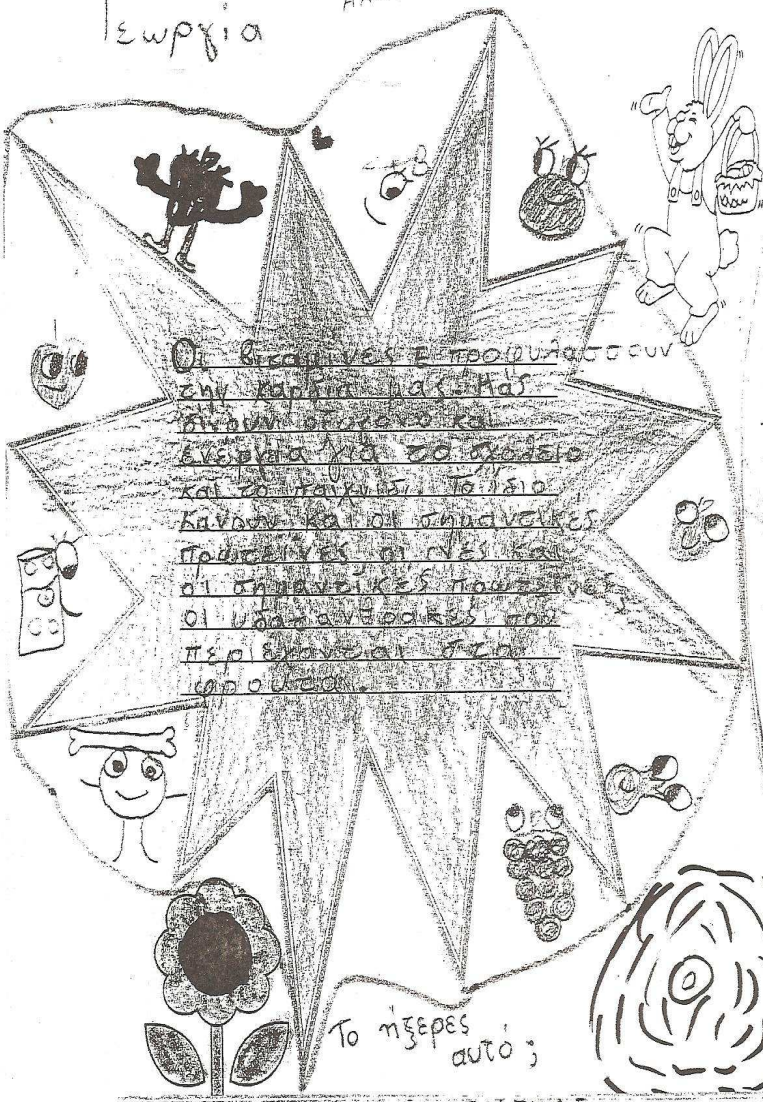 Γεωργία
Οι βιταμίνες Ε προφυλάσσουν
την καρδιά μας. Μας
δίνουν οξυγόνο και
ενέργεια για το σχολείο
και το παιχνίδι. Το ίδιο
κάνουν και οι σημαντικές
πρωτεΐνες οι ίνες και
οι σημαντικές πρωτεΐνες,
οι υδατάνθρακες που
περιέχονται στα
φρούτα.
Το ήξερες
αυτό;